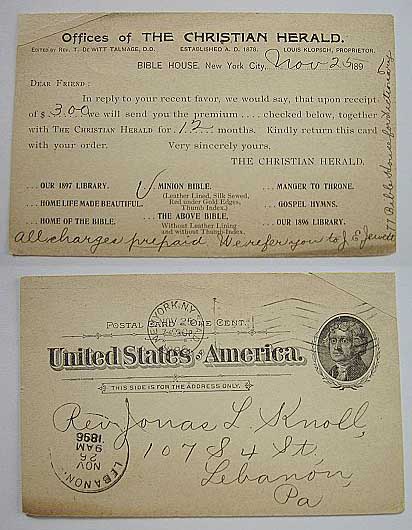 Offices of THE CHRISTIAN HERALD.
EDITED BY REV. T. DE WITT TALMAGE, D.D. ESTABLISHED A. D. 1878. LOUIS KLOPSCH, PROPRIETOR.
BIBLE HOUSE, New York City, Nov 25 189
DEAR FRIEND:
In reply to your recent favor, we would say, that upon receipt
of $ 3.00 we will send you the premium .... checked below, together
with THE CHRISTIAN HERALD for 12 months. Kindly return this card
with your order. Very sincerely yours,
THE CHRISTIAN HERALD.
... OUR 1897 LIBRARY. MINION BIBLE, ... MANGER TO THRONE.
(Leather Lined, Silk Sewed,
Red under Gold Edges,
Thumb Index.)
... HOME LIFE MADE BEAUTIFUL. ... GOSPEL HYMNS.
... HOME OF THE BIBLE. ... THE ABOVE BIBLE, ... OUR 1896 LIBRARY.
Without Leather Lining
and without Thumb-Index.
All charges prepaid We refer you to J. E. Jewett
77 Bible House for dictionary
NEW YORK, N.Y.
NOV 25
POSTAL CARD - ONE CENT.
United States of America.
THIS SIDE IS FOR THE ADDRESS ONLY.
Rev. Jonas L. Knoll,
107 S 4 St.
Lebanon,
Pa
LEBANON
NOV
26
9 AM
1896